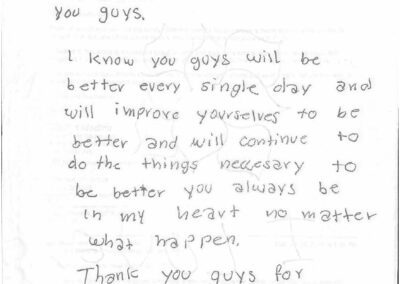 you guys.
I know you guys will be
better every single day and
will improve yourselves to be
better and will continue to
do the things necesary to
be better you always be
in my heart no matter
what happen.
Thank you guys for